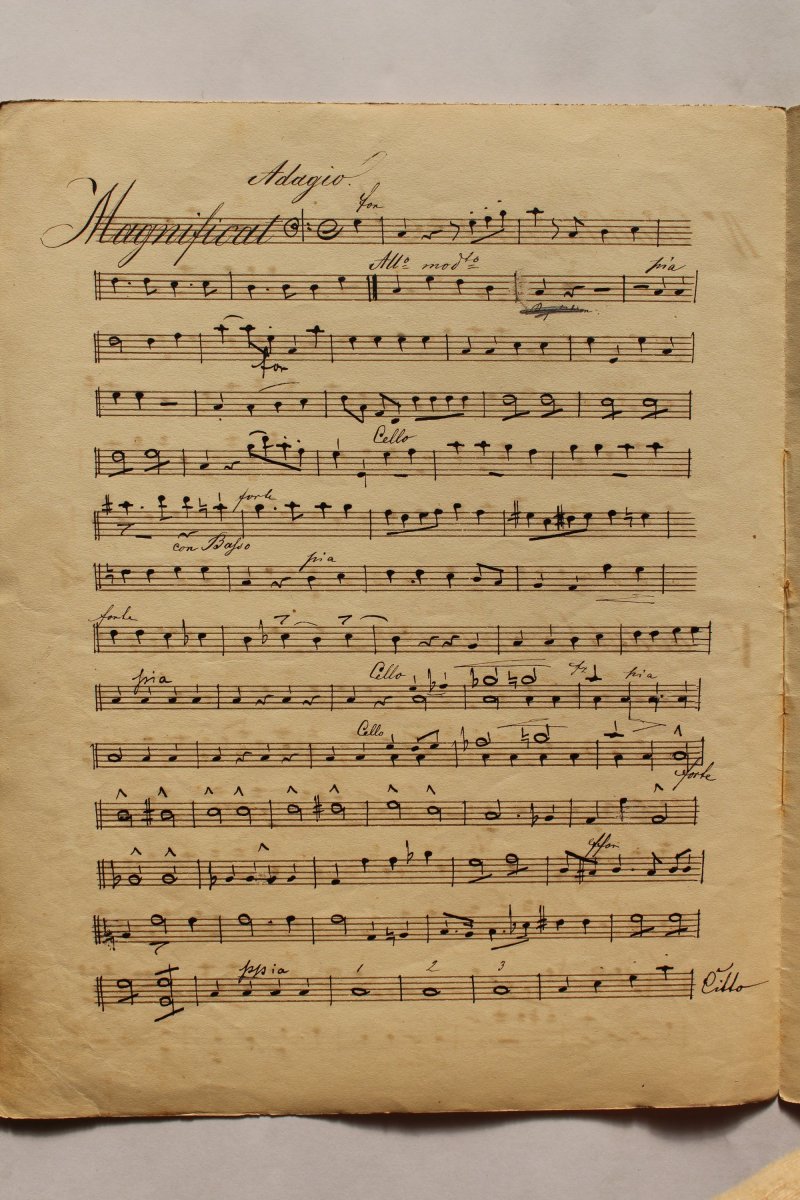 Adagio.
Magnificat for
Allo modto pia
for
Cello
forte
con Basso
pia
forte
pia Cello pia
Cello
forte
ffor
ppia 1 2 3 Citto